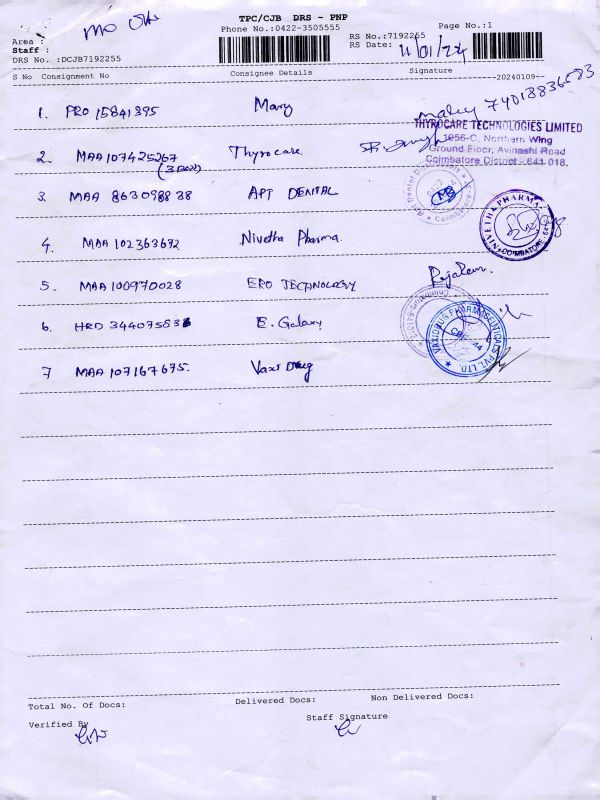 TPC/CJB DRS - PNP
Phone No.:0422-3505555
Page No.:1
Area :
Staff :
RS No.:7192265
RS Date: 11/01/24
DRS No. :DCJB7192255
S No Consignment No Consignee Details Signature
20240109
1. PRO 15841395 Mary
THYROCARE TECHNOLOGIES LIMITED
1056-C, Northern Wing
Ground Floor, Avinashi Road
Coimbatore District - 641 018.
2. MAA 107425267 Thyrocare.
(3 Box)
3. MAA 863098838 APT DENTAL
4. MAA 102363672 Nivetha Pharma.
NIVETHA PHARMA
COIMBATORE
5. MAA 100970028 ERO TECHNOLOGY
6. HRD 344075838 E. Galaxy
7 MAA 107167675.
PHARMACEUTICALS PVT. LTD.
CBE - 44
Total No. Of Docs: Delivered Docs: Non Delivered Docs:
Verified By Staff Signature